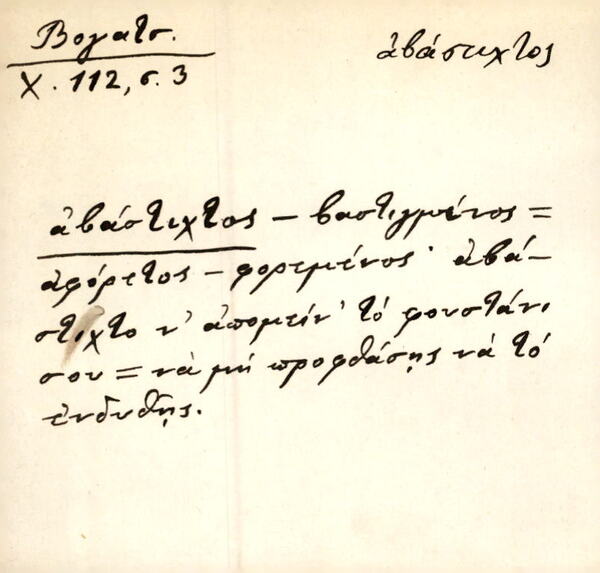 Βογατσ.
Χ. 112, σ. 3
ἀβάστιχτος
ἀβάστιχτος - βαστιγμένος =
ἀφόρετος - φορεμένος· ἀβά-
στιχτο ν' ἀπομείν' τό φουστάνι
σου = νά μή προφθάσῃς νά τό
ἐνδυθῇς.